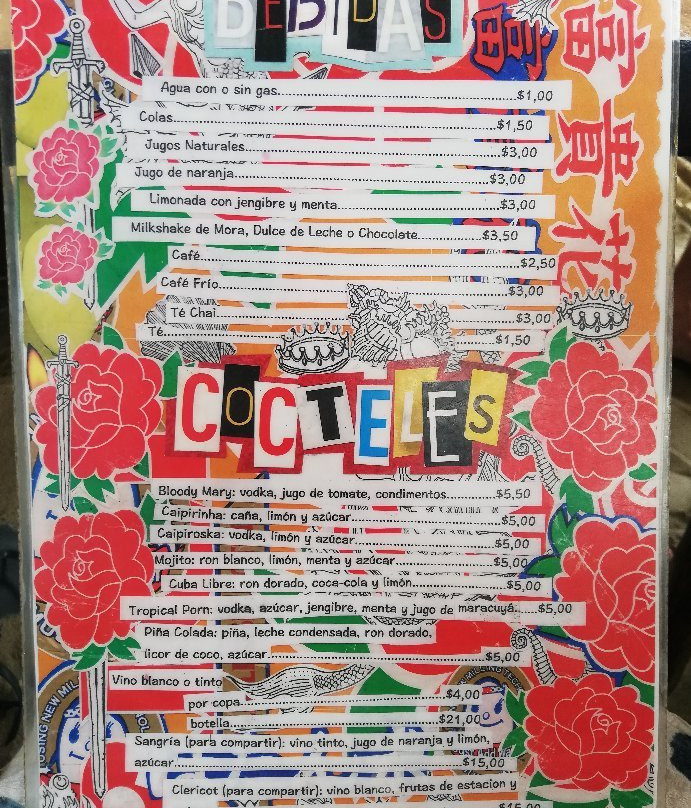 BEBIDAS
富
富
貴
花
Agua con o sin gas...$1,00
Colas...$1,50
Jugos Naturales...$3,00
Jugo de naranja...$3,00
Limonada con jengibre y menta...$3,00
Milkshake de Mora, Dulce de Leche o Chocolate...$3,50
Café...$2,50
Café Frío...$3,00
Té Chai...$3,00
Té...$1,50
COCTELES
Bloody Mary: vodka, jugo de tomate, condimentos...$5,50
Caipirinha: caña, limón y azúcar...$5,00
Caipiroska: vodka, limón y azúcar...$5,00
Mojito: ron blanco, limón, menta y azúcar...$5,00
Cuba Libre: ron dorado, coca-cola y limón...$5,00
Tropical Porn: vodka, azúcar, jengibre, menta y jugo de maracuyá...$5,00
Piña Colada: piña, leche condensada, ron dorado,
licor de coco, azúcar...$5,00
Vino blanco o tinto
por copa...$4,00
botella...$21,00
Sangría (para compartir): vino tinto, jugo de naranja y limón,
azúcar...$15,00
Clericot (para compartir): vino blanco, frutas de estacion y
$15,00